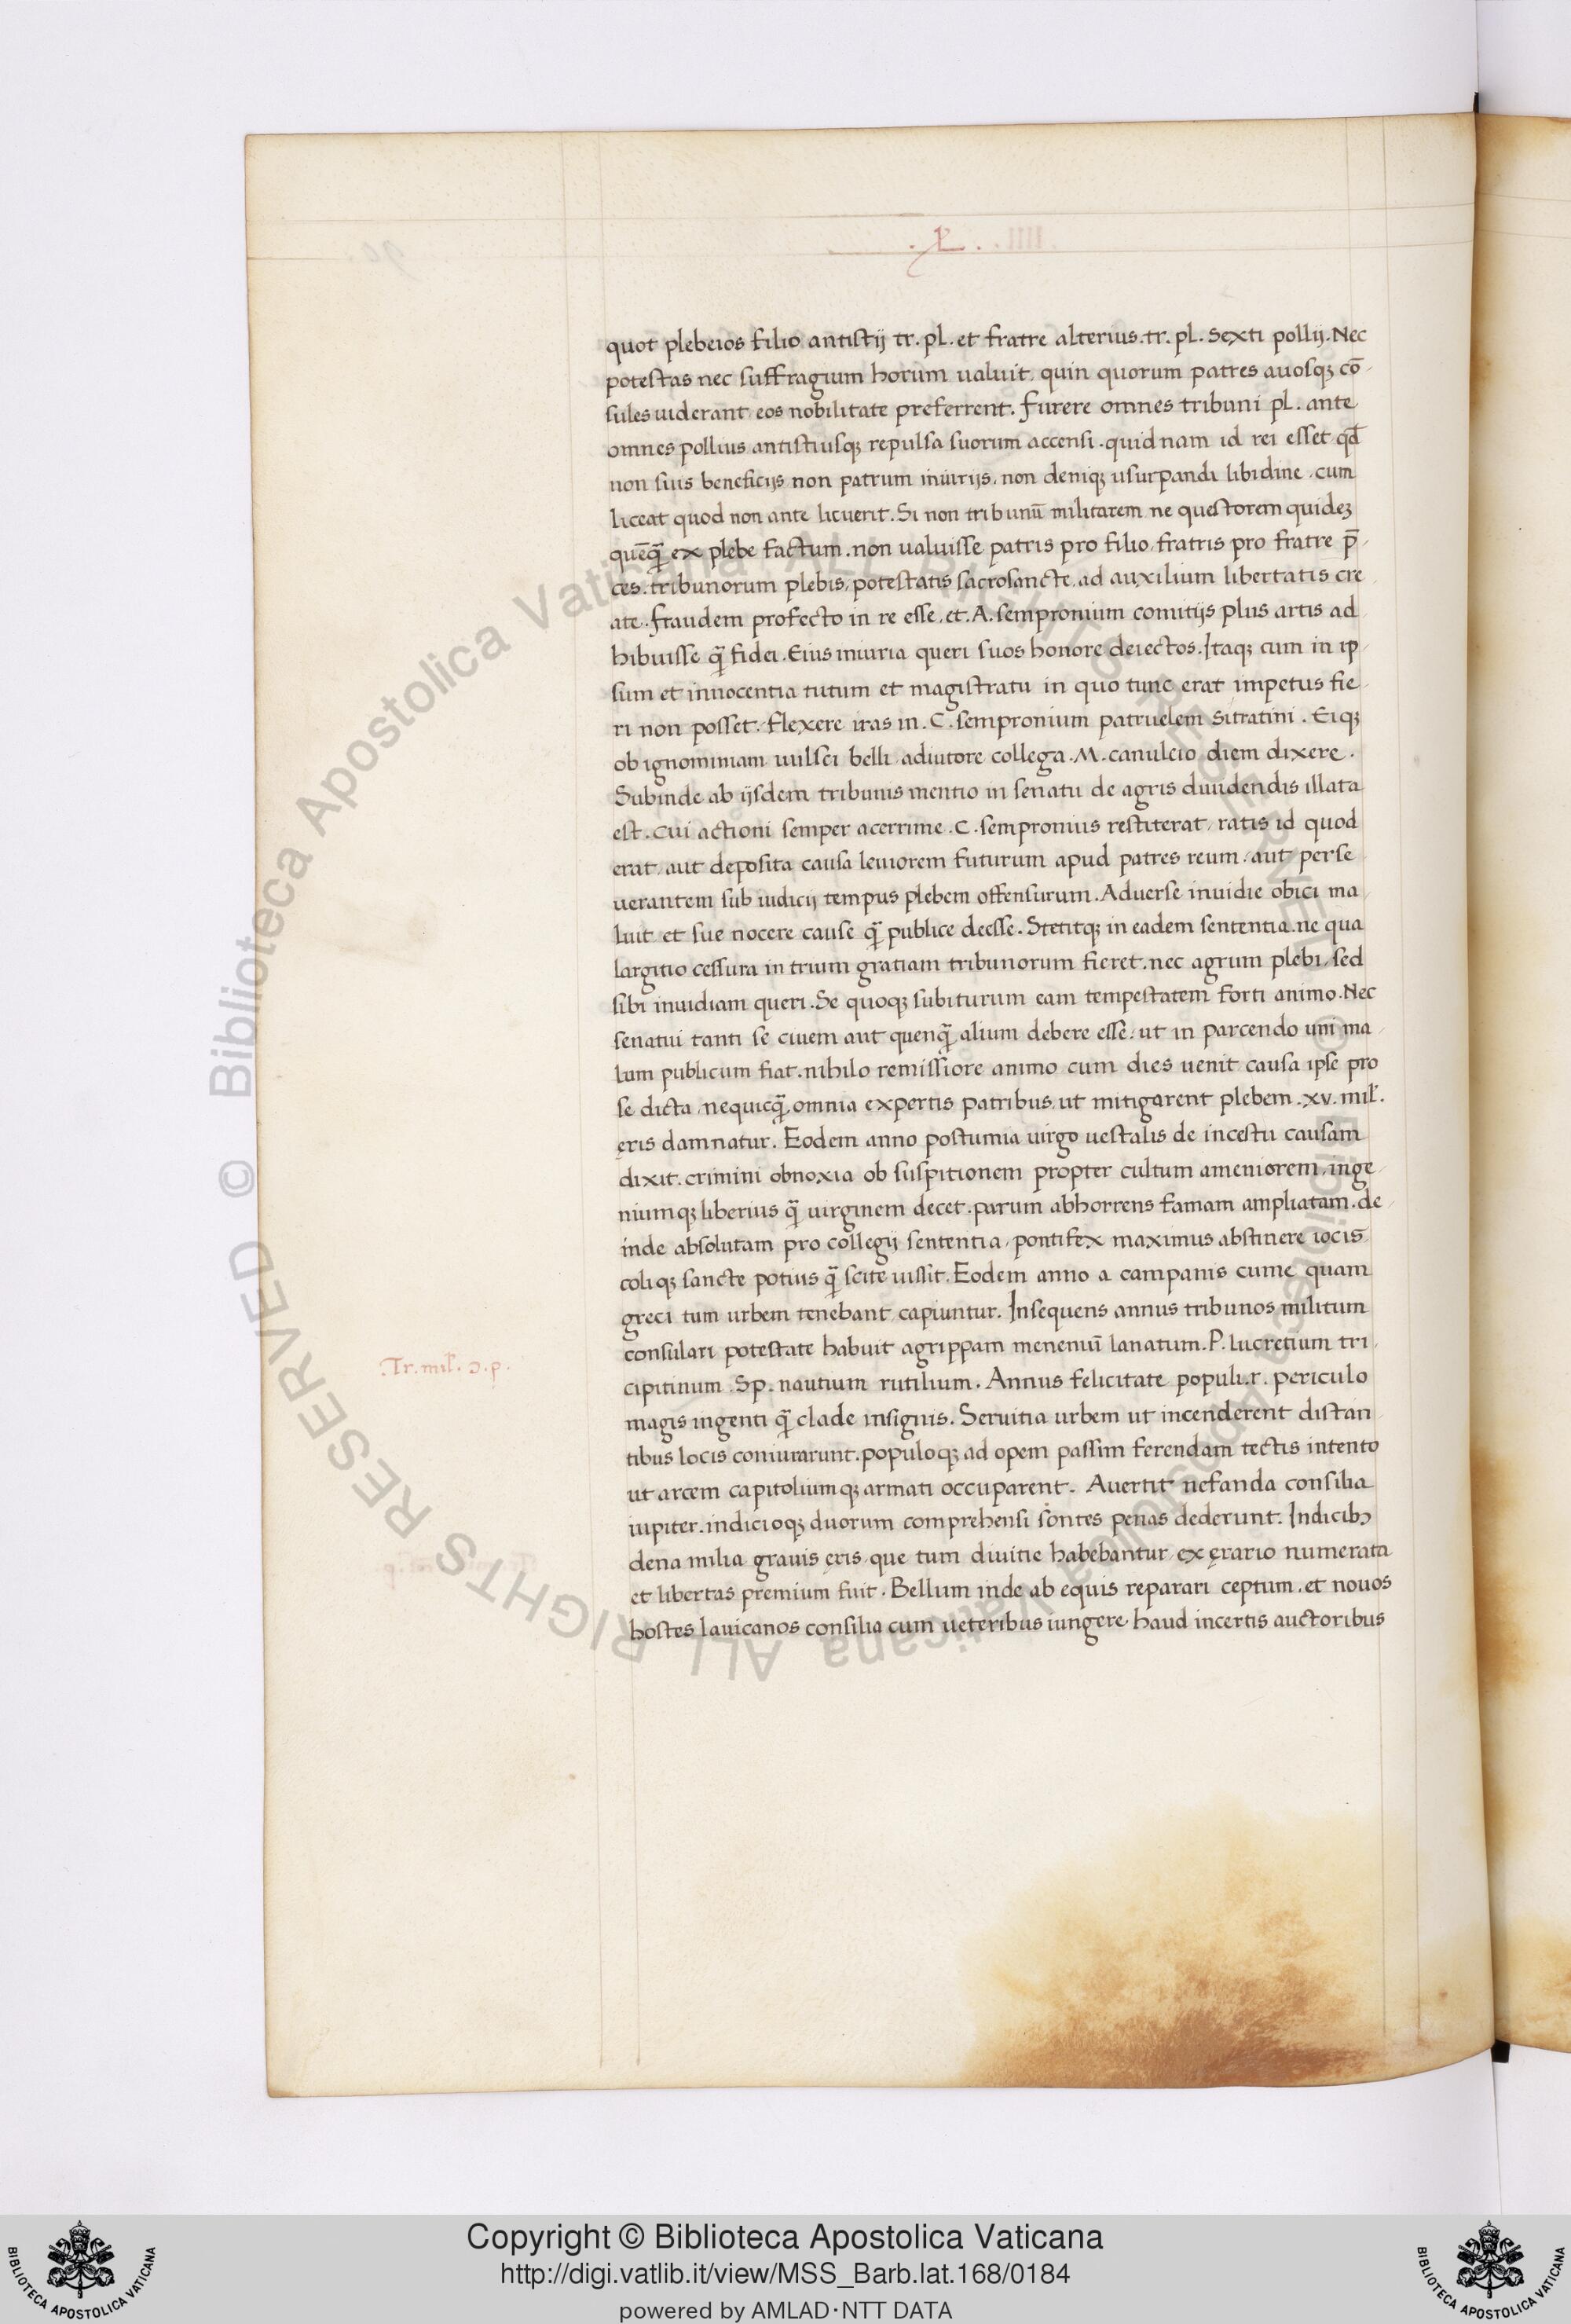 . L .
quot plebeios filio antistij tr. pl. et fratre alterius. tr. pl. Sexti pollij. Nec
potestas nec suffragium horum ualuit, quin quorum patres auosqꝫ cō
sules uiderant eos nobilitate preferrent. Furere omnes tribuni pl. ante
omnes pollius antistiusqꝫ repulsa suorum accensi. quid nam id rei esset qđ
non suis beneficijs non patrum iniurijs. non deniqꝫ usurpandi libidine. cum
liceat quod non ante licuerit. Si non tribunū militarem ne questorem quideꝫ
quēq̄ ex plebe factum. non ualuisse patris pro filio, fratris pro fratre p̄
ces. tribunorum plebis, potestatis sacrosancte, ad auxilium libertatis cre
ate. fraudem profecto in re esse. et. A. sempronium comitijs plus artis ad
hibuisse q̄ fidei. Eius iniuria queri suos honore deiectos. Itaqꝫ cum in ip
sum et innocentia tutum et magistratu in quo tunc erat impetus fie
ri non posset. flexere iras in. C. sempronium patruelem Sitratini. Eiqꝫ
ob ignominiam uulsci belli adiutore collega. M. canuleio diem dixere.
Subinde ab ijsdem tribunis mentio in senatu de agris diuidendis illata
est. cui actioni semper acerrime. C. sempronius restiterat, ratis id quod
erat, aut deposita causa leuiorem futurum apud patres reum. aut perse
uerantem sub iudicij tempus plebem offensurum. Aduerse inuidie obici ma
luit et sue nocere cause q̄ publice deesse. Stetitqꝫ in eadem sententia. ne qua
largitio cessura in trium gratiam tribunorum fieret. nec agrum plebi, sed
sibi inuidiam queri. Se quoqꝫ subiturum eam tempestatem forti animo. Nec
senatui tanti se ciuem aut quenq̄ alium debere esse. ut in parcendo uni ma
lum publicum fiat. nihilo remissiore animo cum dies uenit causa ipse pro
se dicta, nequicq̄, omnia expertis patribus ut mitigarent plebem. xv. mil̄.
ęris damnatur. Eodem anno postumia uirgo uestalis de incestu causam
dixit. crimini obnoxia ob suspitionem propter cultum ameniorem, inge
niumqꝫ liberius q̄ uirginem decet. parum abhorrens famam ampliatam. de
inde absolutam pro collegij sententia, pontifex maximus abstinere iocis
coliqꝫ sancte potius q̄ scite iussit. Eodem anno a campanis cume quam
greci tum urbem tenebant capiuntur. Insequens annus tribunos militum
consulari potestate habuit agrippam meneniū lanatum. P. lucretium tri
.Tr. mil̄. ɔ. p.
cipitinum. Sp. nautium rutilium. Annus felicitate populi. r. periculo
magis ingenti q̄ clade insignis. Seruitia urbem ut incenderent distan
tibus locis coniurarunt. populoqꝫ ad opem passim ferendam tectis intento
ut arcem capitoliumqꝫ armati occuparent. Auertit nefanda consilia
iupiter. indicioqꝫ duorum comprehensi sontes penas dederunt. Indicibꝫ
dena milia grauis ęris, que tum diuitie habebantur, ex ęrario numerata
et libertas premium fuit. Bellum inde ab equis reparari ceptum. et nouos
hostes lauicanos consilia cum ueteribus iungere haud incertis auctoribus
© Biblioteca Apostolica Vaticana ALL RIGHTS RESERVED © Biblioteca Apostolica Vaticana ALL RIGHTS RESERVED
Copyright © Biblioteca Apostolica Vaticana
http://digi.vatlib.it/view/MSS_Barb.lat.168/0184
powered by AMLAD·NTT DATA
BIBLIOTECA APOSTOLICA VATICANA
BIBLIOTECA APOSTOLICA VATICANA